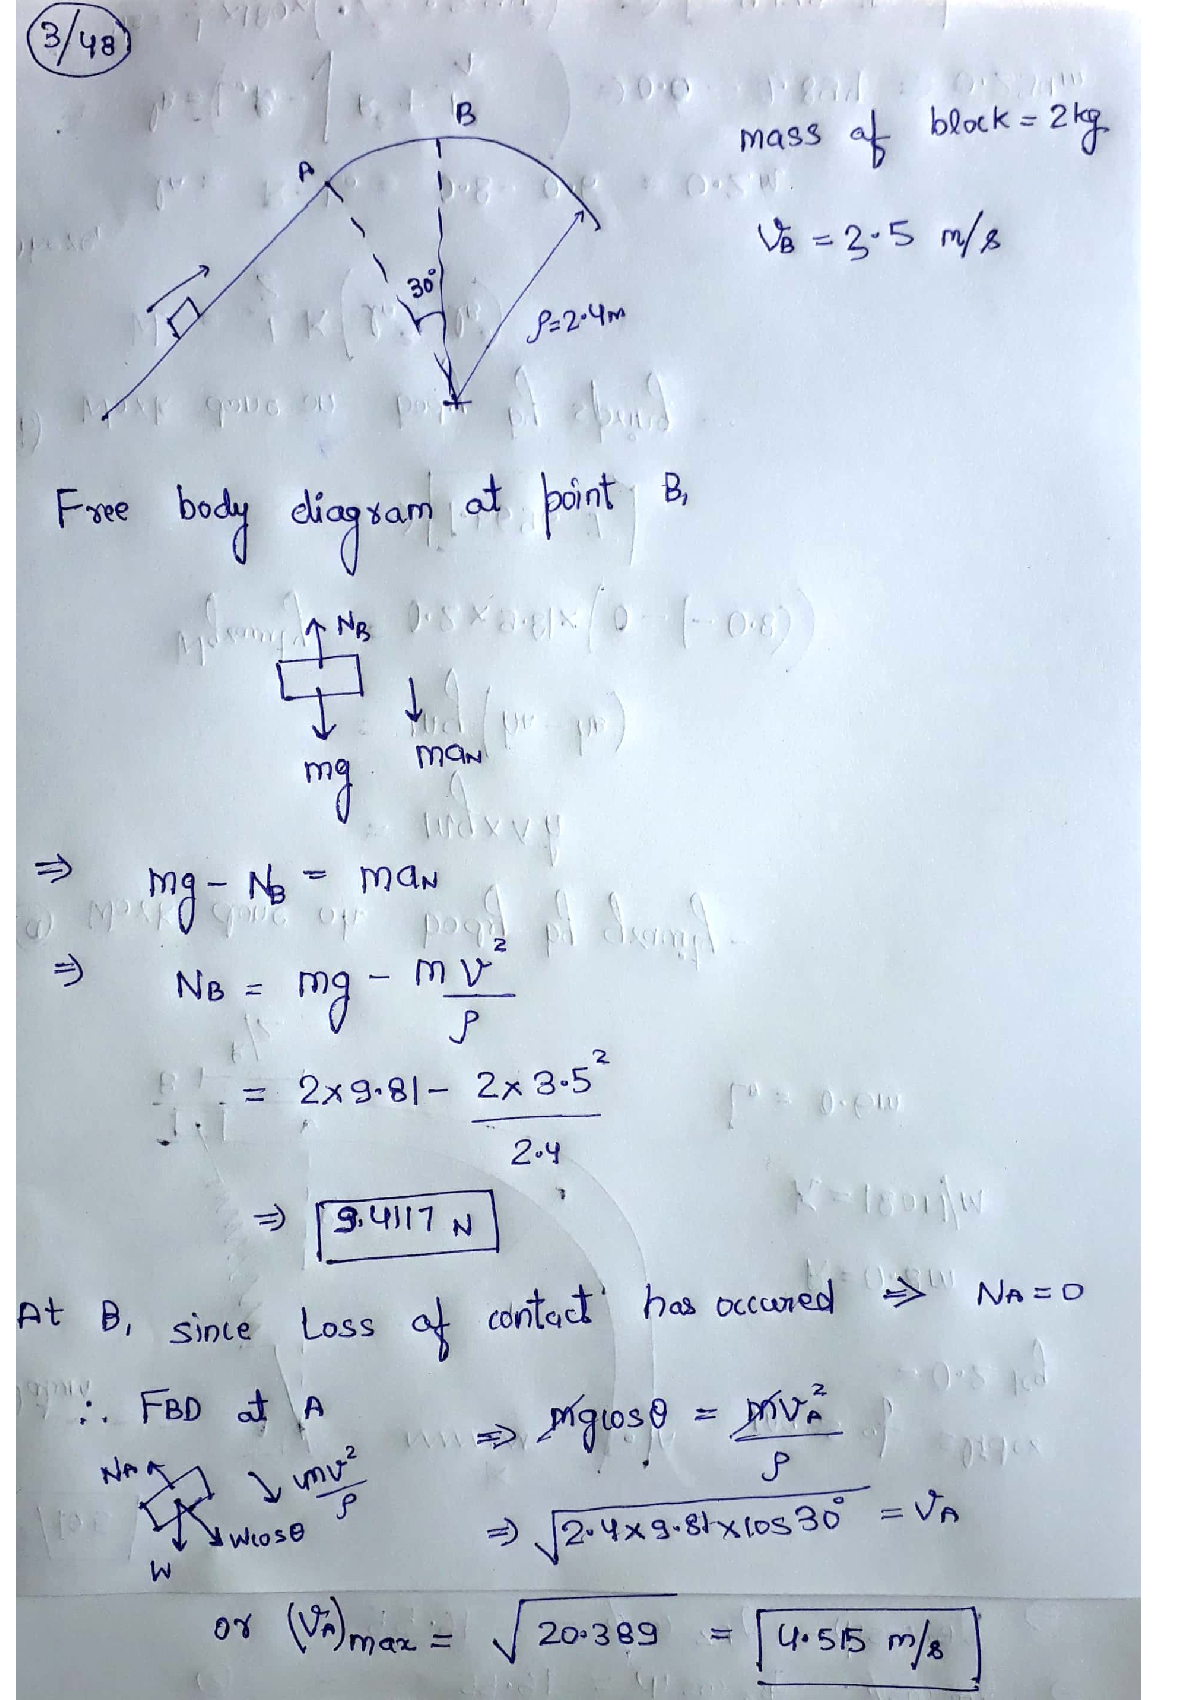 3/48
B
A
30°
ρ=2.4m
mass of block = 2kg
VB = 3.5 m/s
Free body diagram at point B,
NB
mg
maN
⇒ mg - NB = maN
⇒ NB = mg - mv²/ρ
= 2×9.81 - 2×3.5²/2.4
⇒ 9.4117 N
At B, since Loss of contact has occured ⇒ NA = 0
∴ FBD at A
NA
mv²/ρ
Wcosθ
W
⇒ mgcosθ = mvA²/ρ
⇒ √2.4×9.81×cos30° = VA
or (VA)max = √20.389 = 4.515 m/s